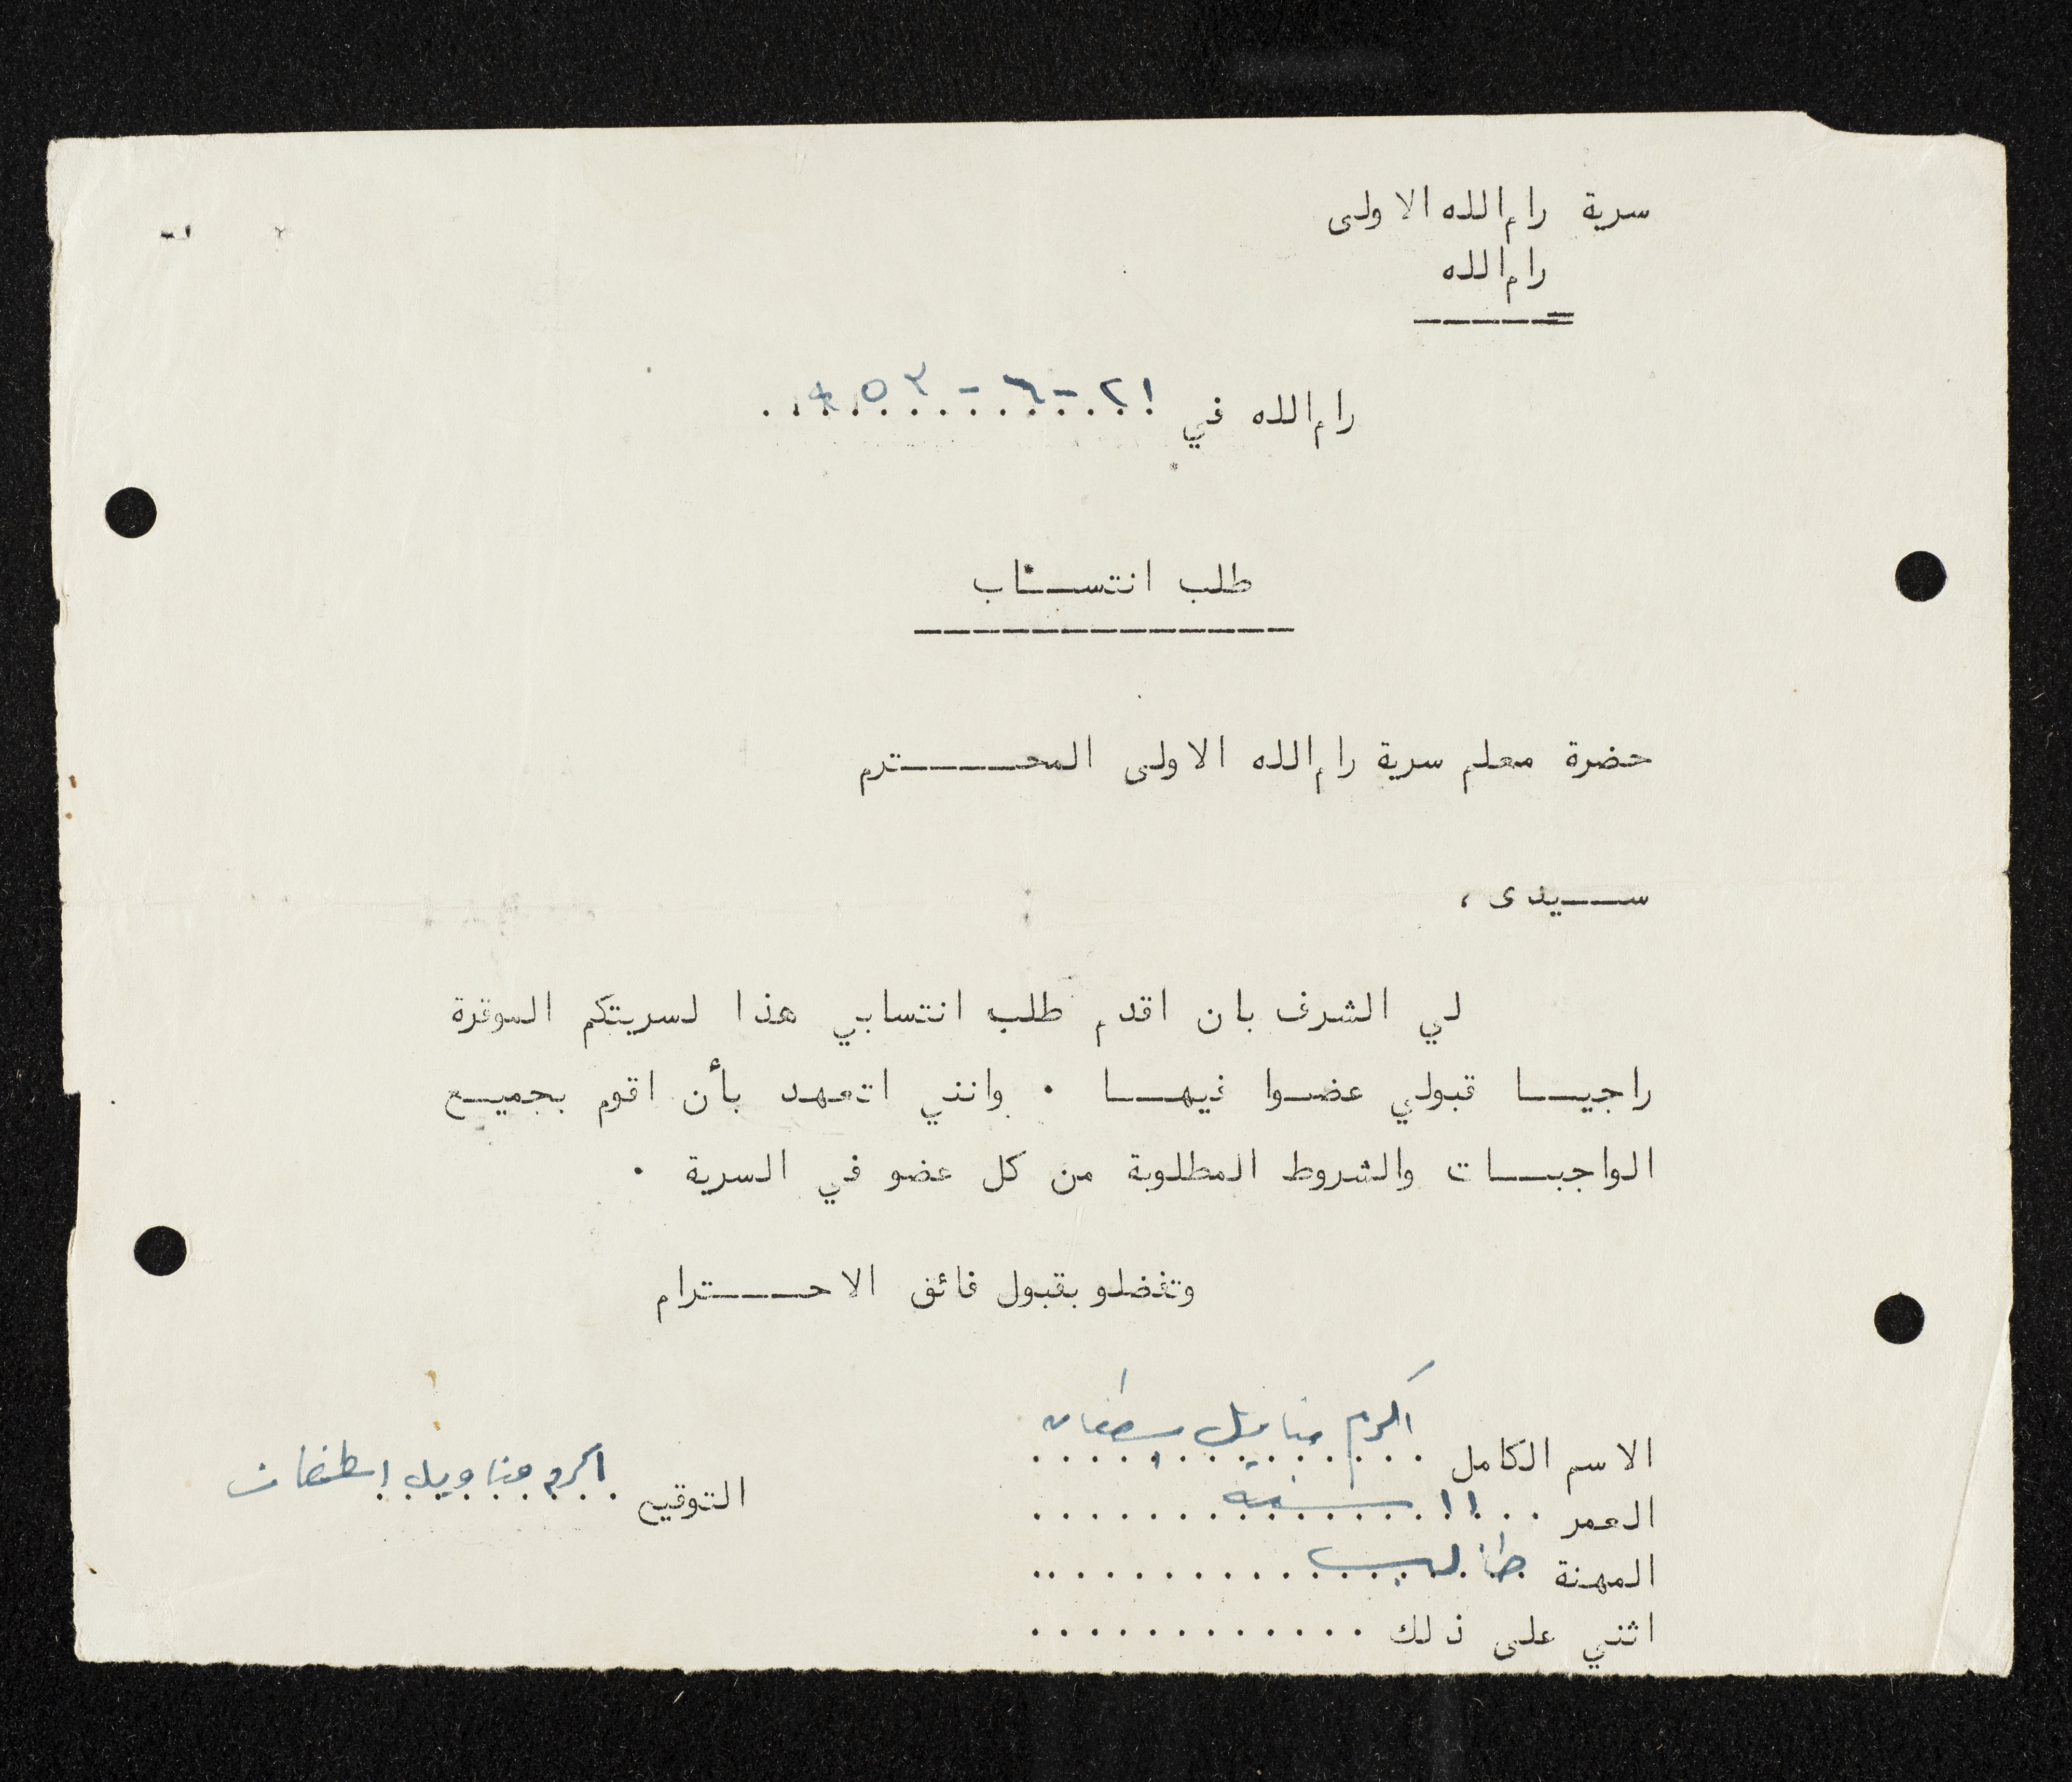 سرية رام الله الاولى
رام الله
رام الله في ٢١-٦-٩٥٣
طلب انتساب
حضرة معلم سرية رام الله الاولى المحترم
سيدى ،
لي الشرف بان اقدم طلب انتسابي هذا لسريتكم الموقرة
راجيا قبولي عضوا فيها . وانني اتعهد بأن اقوم بجميع
الواجبات والشروط المطلوبة من كل عضو في السرية .
وتفضلو بقبول فائق الاحترام
الاسم الكامل اكرم
العمر ١١ سنه
المهنة طالب
اثني على ذلك ............
التوقيع اكرم مناويل اسطفان